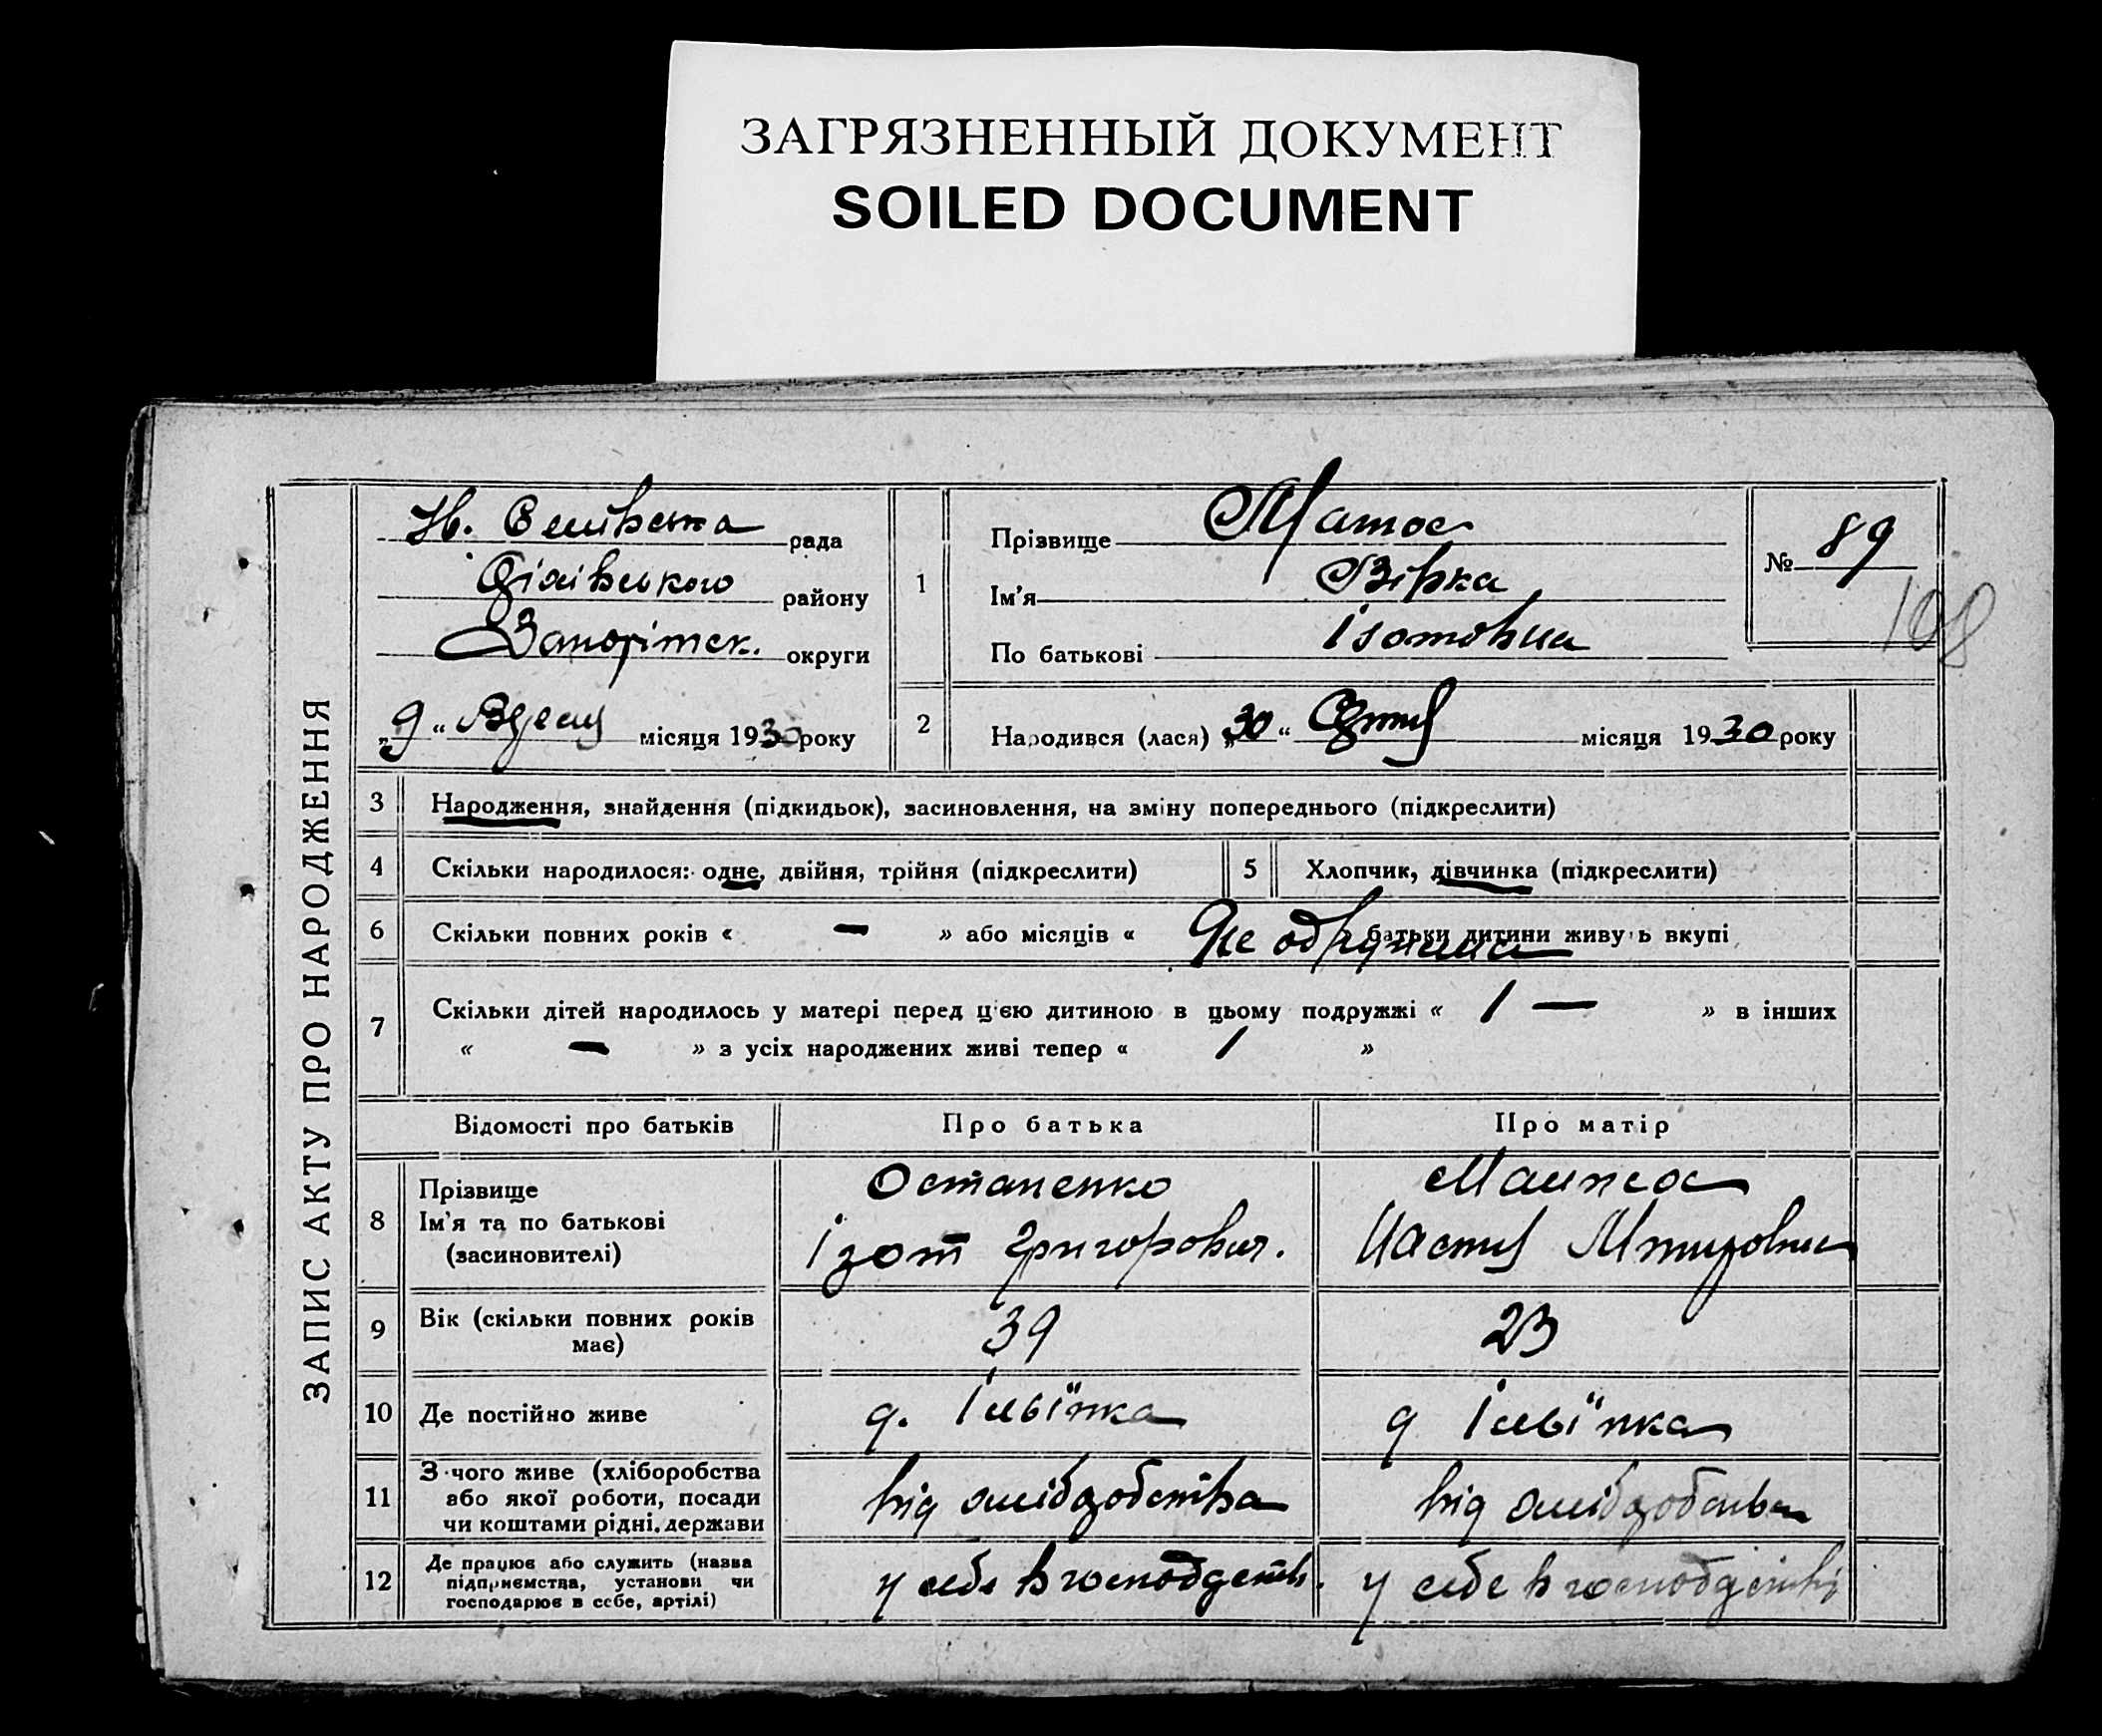 ЗАГРЯЗНЕННЫЙ ДОКУМЕНТ
SOILED DOCUMENT
ЗАПИС АКТУ ПРО НАРОДЖЕННЯ
рада
району
округи
„9“ місяця 1930 року
1
Прізвище
Ім'я Вірка
По батькові Ізотовна
№ 89
108
2
Народився (лася) „30“ місяця 1930 року
3 Народження, знайдення (підкидьок), засиновлення, на зміну попереднього (підкреслити)
4 Скільки народилося: одне, двійня, трійня (підкреслити)
5 Хлопчик, дівчинка (підкреслити)
6 Скільки повних років « — » або місяців « батьки дитини живуть вкупі
7 Скільки дітей народилось у матері перед цією дитиною в цьому подружжі « 1 — » в інших
« — » з усіх народжених живі тепер « 1 »
Відомості про батьків Про батька Про матір
8 Прізвище
Ім'я та по батькові
(засиновителі)
Остапенко
Ізот Григорович.
9 Вік (скільки повних років
має)
39 23
10 Де постійно живе
11 З чого живе (хліборобства
або якої роботи, посади
чи коштами рідні, держави
від від
12 Де працює або служить (назва
підприємства, установи чи
господарює в себе, артілі)
у себе в у себе в